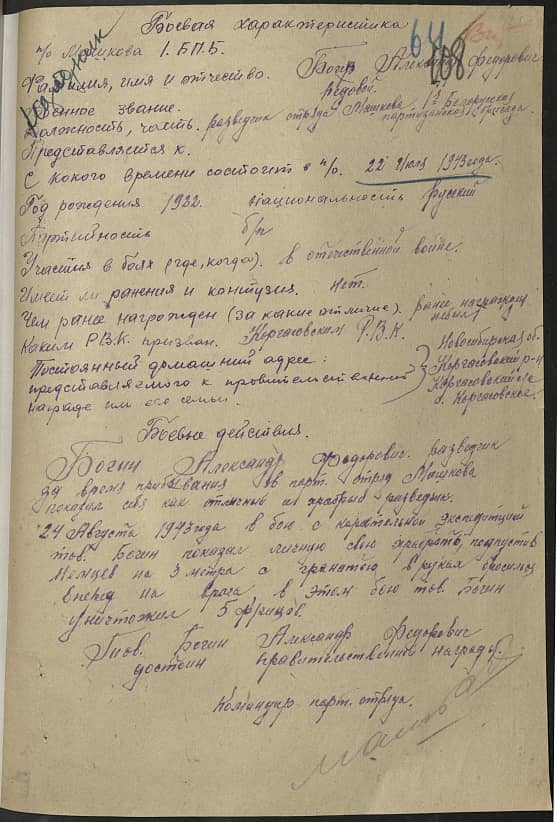 Боевая характеристика
п/о Машкова 1. Б.П.Б.
64
208
Фамилия, имя и отчество. Богин Александр Федорович
Военное звание. Рядовой
Должность, часть. разведчик отряда Машкова 1й Белорусская
партизанская бригада.
Представляется к.
С какого времени состоит в п/о. 22 Июля 1943 года.
Год рождения 1922. Национальность Русский
Партийность б/п
Участия в боях (где, когда). в отечественной войне.
Имеет ли ранения и контузия. Нет.
Чем ранее награжден (за какие отличие). ранее награжден
небыл
Каким Р.В.К. призван. Каргасовским Р.В.К.
Постоянный домашний адрес:
представляемого к правительственной
награде или его семьи.
Новосибирская об.
Каргасовский р-н
Каргасовский с/с
с. Каргасовское.
Боевые действия.
Богин Александр Федорович разведчик
за время прибывания в парт. отряд Машкова
показал себя как отличный и храбрый разведчик.
24 Августа 1943 года в бою с карательной экспедицией
тов. Богин показал личную свою храбрость, подпустив
Немцев на 3 метра с гранатой в руках бросился
вперед на врага в этом бою тов. Богин
уничтожил 5 фрицов.
Тов. Богин Александр Федорович
достоин правительственной награды.
Командир парт. отряда.